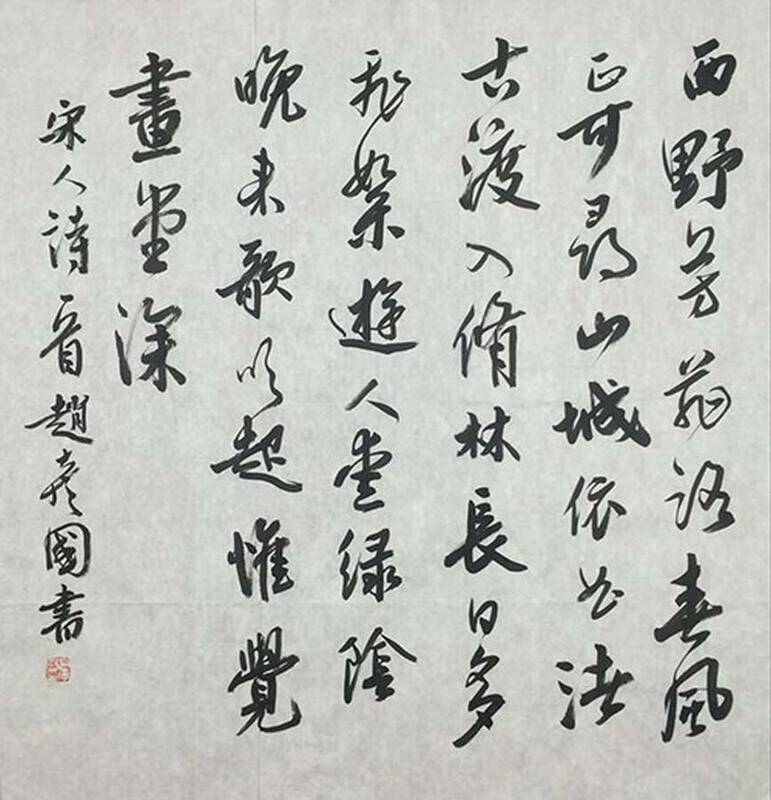 西野芳菲路春風
正可尋山城依曲渚
古渡入脩林長日多
飛絮遊人愛緑陰
晚来歌吹起惟覺
畫堂深
宋人詩一首趙彥國書